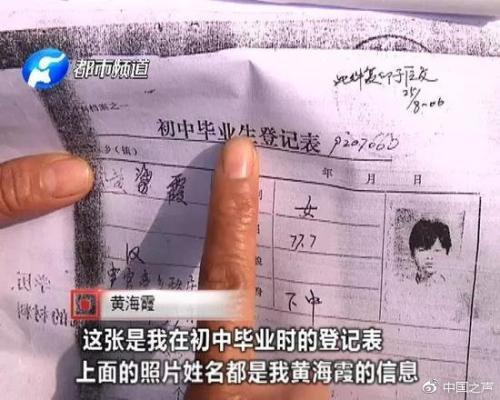 都市频道
此件复印于区交
25/8-06
档案之一
初中毕业生登记表
9207663
乡(镇)
年 月 日
黄海霞
别
女
汉
77.7
下中
黄海霞
这张是我在初中毕业时的登记表
上面的照片姓名都是我黄海霞的信息
@中国之声